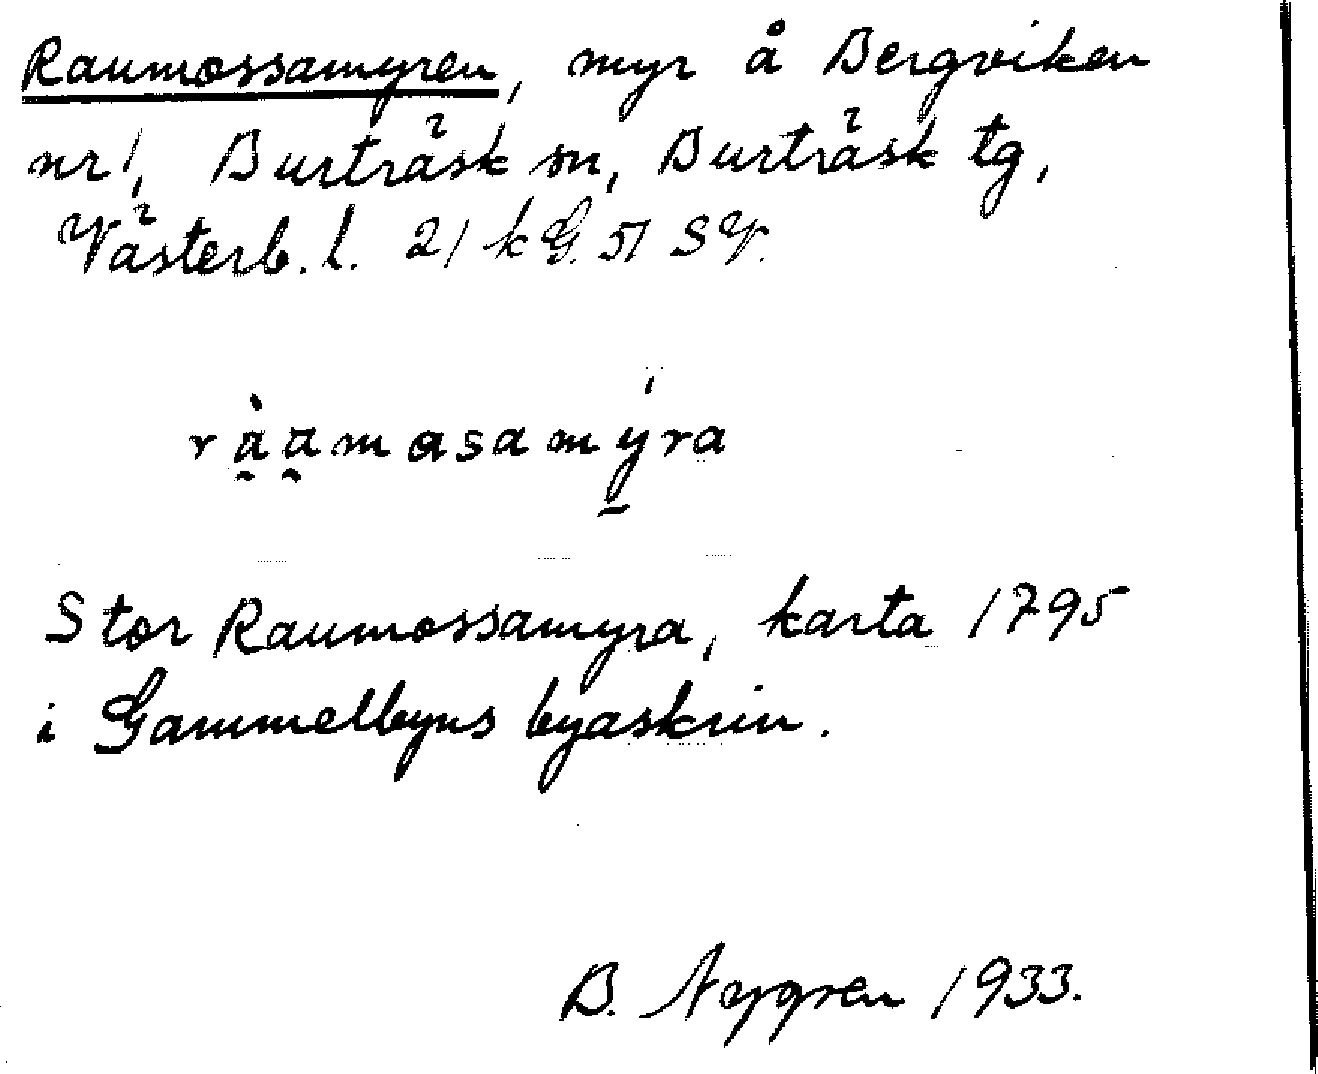 Raumossamyren, myr å Bergviken
nr 1, Burträsk sn, Burträsk tg,
Västerb. l. 21 k G. 51 SV.
rà̤a̤mosamýra
Stor Raumossamyra, karta 1795
i Gammelbyns byaskrin.
B. Nygren 1933.